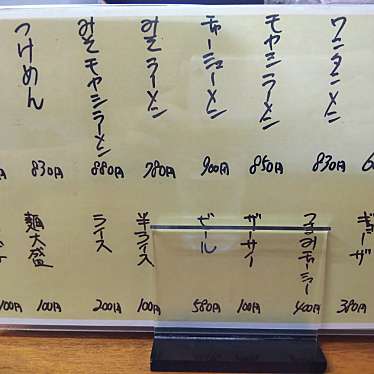 ワンタンメン
830円
モヤシラーメン
850円
チャーシューメン
900円
みそラーメン
780円
みそモヤシラーメン
880円
つけめん
830円
ギョーザ
380円
つまみチャーシュー
400円
ザーサイ
100円
ビール
580円
半ライス
100円
ライス
200円
麺大盛
100円
100円